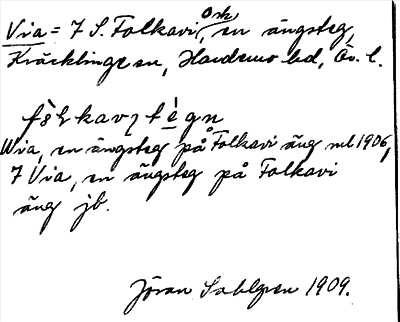 Via = 7 S. Folkavi, Ösk, en ängsteg,
Kräcklinge sn, Hardemo hd, Ör. l.
Wia, en ängsteg på Folkavi äng ml 1906,
7 Via, en ängsteg på Folkavi
äng jb.
Jöran Sahlgren 1909.